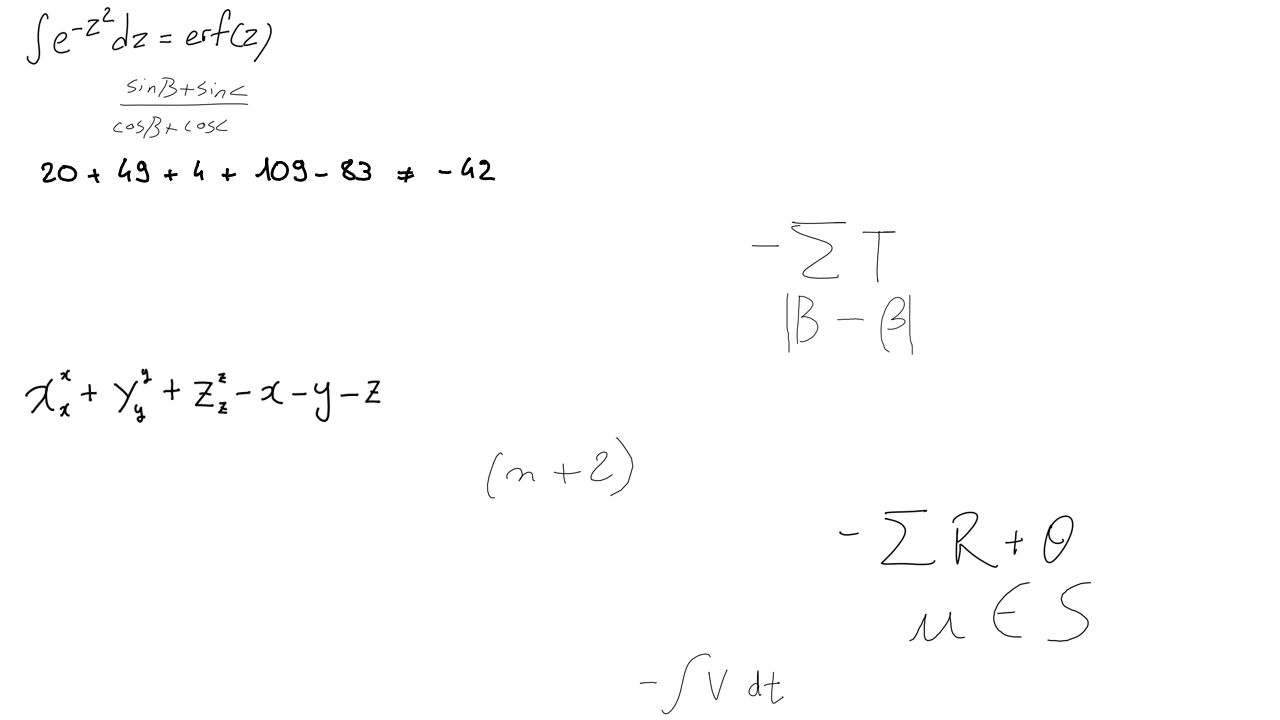 ∫e^{-z^2}dz = erf(z)
\frac{sinB+sinC}{cosB+cosC}
20 + 49 + 4 + 109 - 83 ≠ -42
-∑T
|B - β|
x_x^x + y_y^y + z_z^z - x - y - z
(n + 2)
-∑R + θ
μ ∈ S
-∫V dt